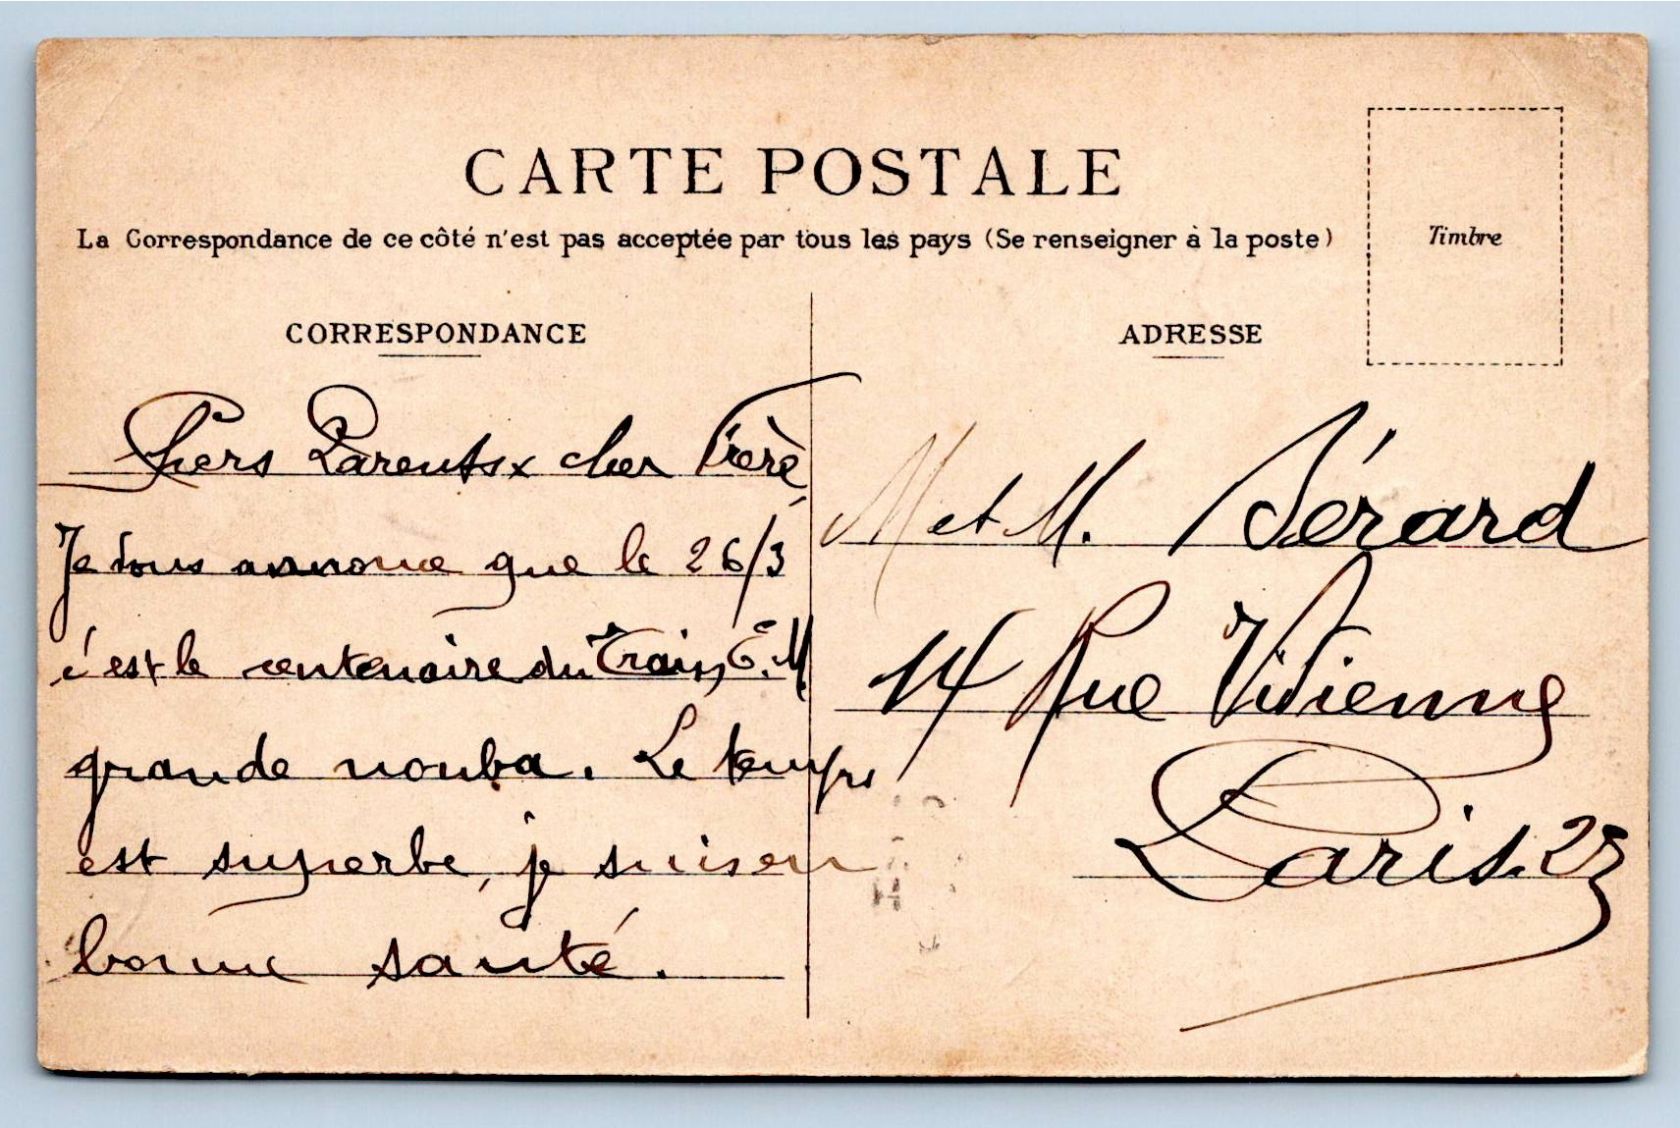 CARTE POSTALE
La Correspondance de ce côté n'est pas acceptée par tous les pays (Se renseigner à la poste)
Timbre
CORRESPONDANCE
ADRESSE
Chers Parents x cher Frère
Je vous annonce que le 26/3
c'est le centenaire du Train, E.M
grande nouba. Le temps
est superbe, je suis en
bonne santé.
M et M. Bérard
14 Rue Vivienne
Paris. 2e